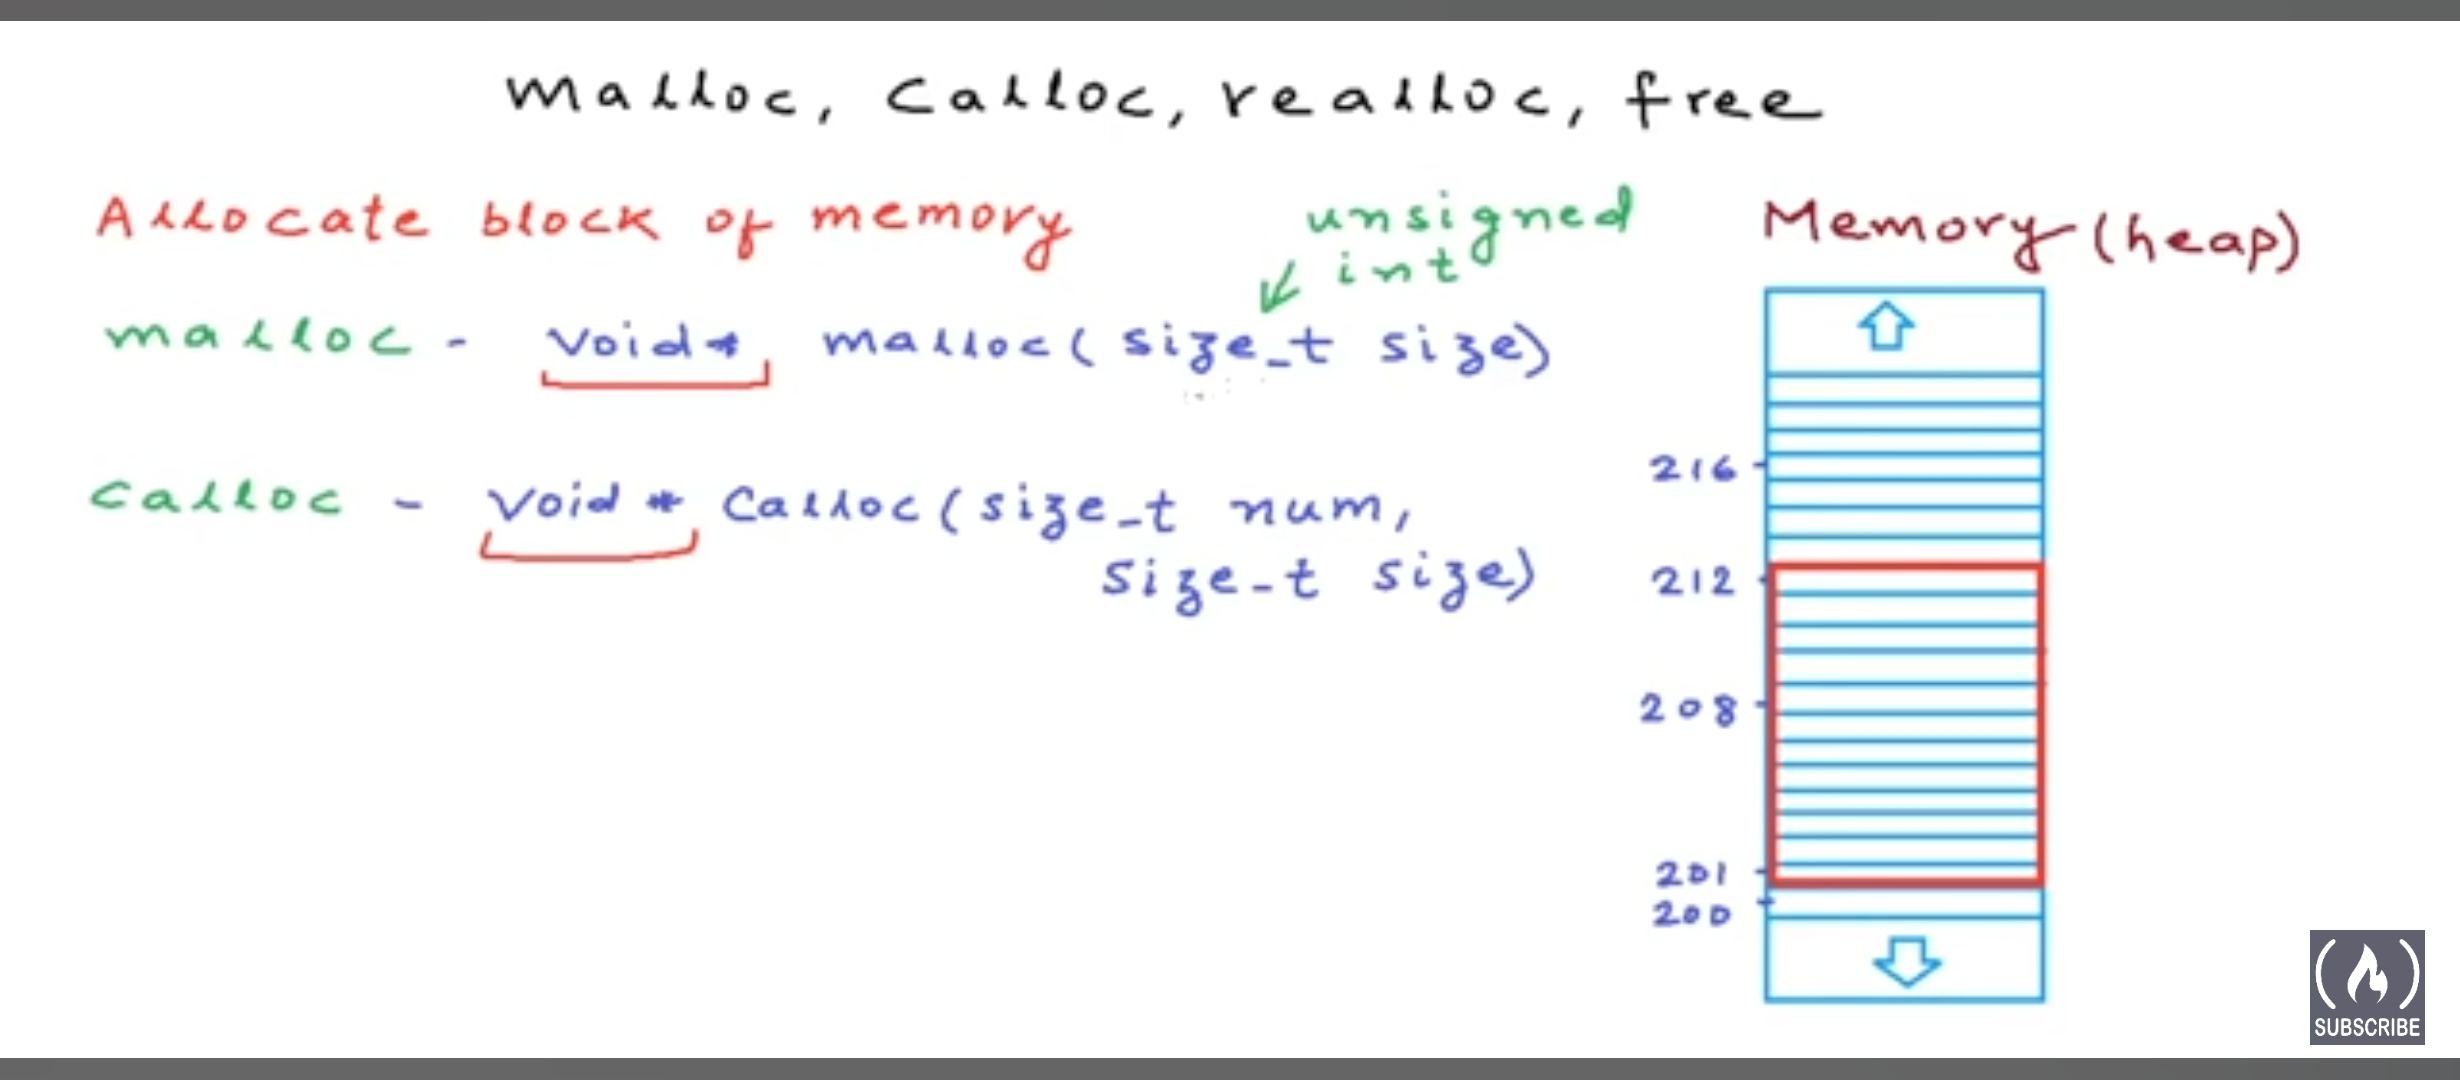 malloc, calloc, realloc, free
Allocate block of memory
unsigned
int
Memory (heap)
malloc - void* malloc(size_t size)
calloc - void * calloc(size_t num,
size_t size)
216
212
208
201
200
SUBSCRIBE